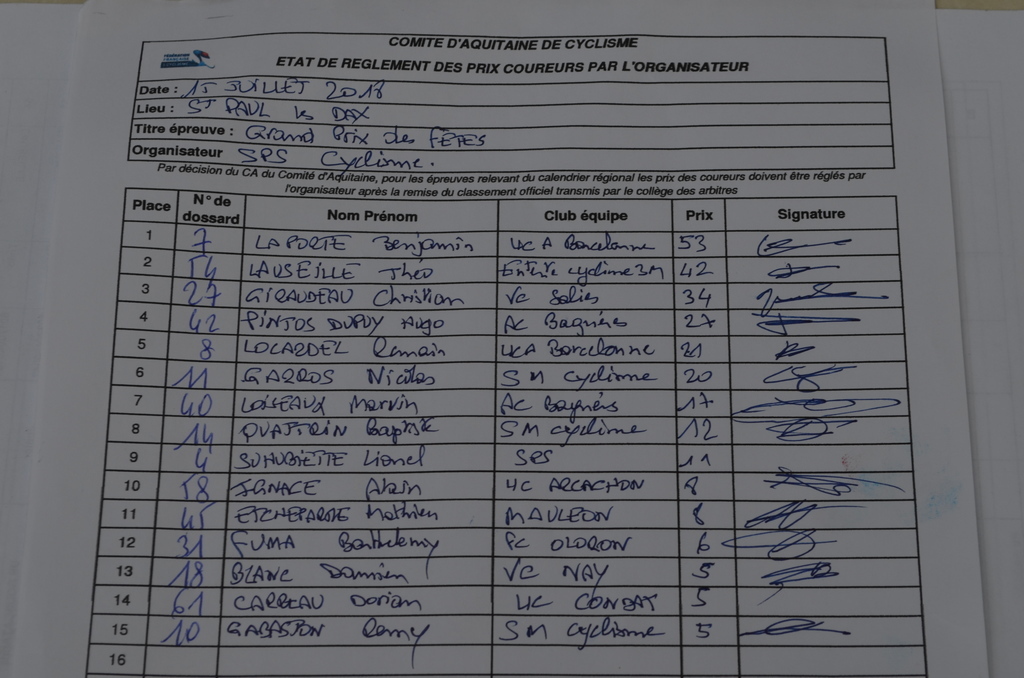 COMITE D'AQUITAINE DE CYCLISME
ETAT DE REGLEMENT DES PRIX COUREURS PAR L'ORGANISATEUR
Date : 15 JUILLET 2018
Lieu : ST PAUL les DAX
Titre épreuve : Grand Prix des FÊTES
Organisateur SPS Cyclisme.
Par décision du CA du Comité d'Aquitaine, pour les épreuves relevant du calendrier régional les prix des coureurs doivent être réglés par
l'organisateur après la remise du classement officiel transmis par le collège des arbitres
Place N° de dossard Nom Prénom Club équipe Prix Signature
1 7 LAPORTE Benjamin UCA Barcelonne 53
2 54 LAUSEILLE Théo Entente cyclisme 3M 42
3 27 GIRAUDEAU Christian VC Salies 34
4 42 PINTOS DUPUY Hugo AC Bagnères 27
5 8 LOCARDEL Romain UCA Barcelonne 21
6 11 GARROS Nicolas SM Cyclisme 20
7 40 LOISEAUX Marvin AC Bagnères 17
8 14 QUATTRIN Baptiste SM cyclisme 12
9 4 SUHUBIETTE Lionel SPS 11
10 58 IGNACE Alain UC ARCACHON 8
11 45 ETCHEPARTE Mathieu MAULEON 8
12 31 FUMA Barthelemy FC OLORON 6
13 18 BLANC Damien VC NAY 5
14 61 CARREAU Dorian UC CONDAT 5
15 10 GABASTON Remy SM Cyclisme 5
16